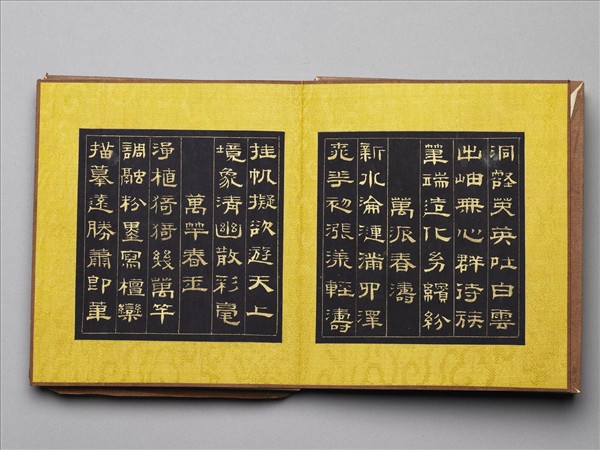 洞壑英英吐白雲
出岫無心群待族
筆端造化繽紛
萬派春濤
新水淪漣滿卯澤
初漲漾輕濤
挂帆擬欲遊天上
境象清幽散彩毫
萬竿春玉
淨植猗猗幾萬竿
調融粉墨寫檀欒
描摹遠勝蕭郎筆